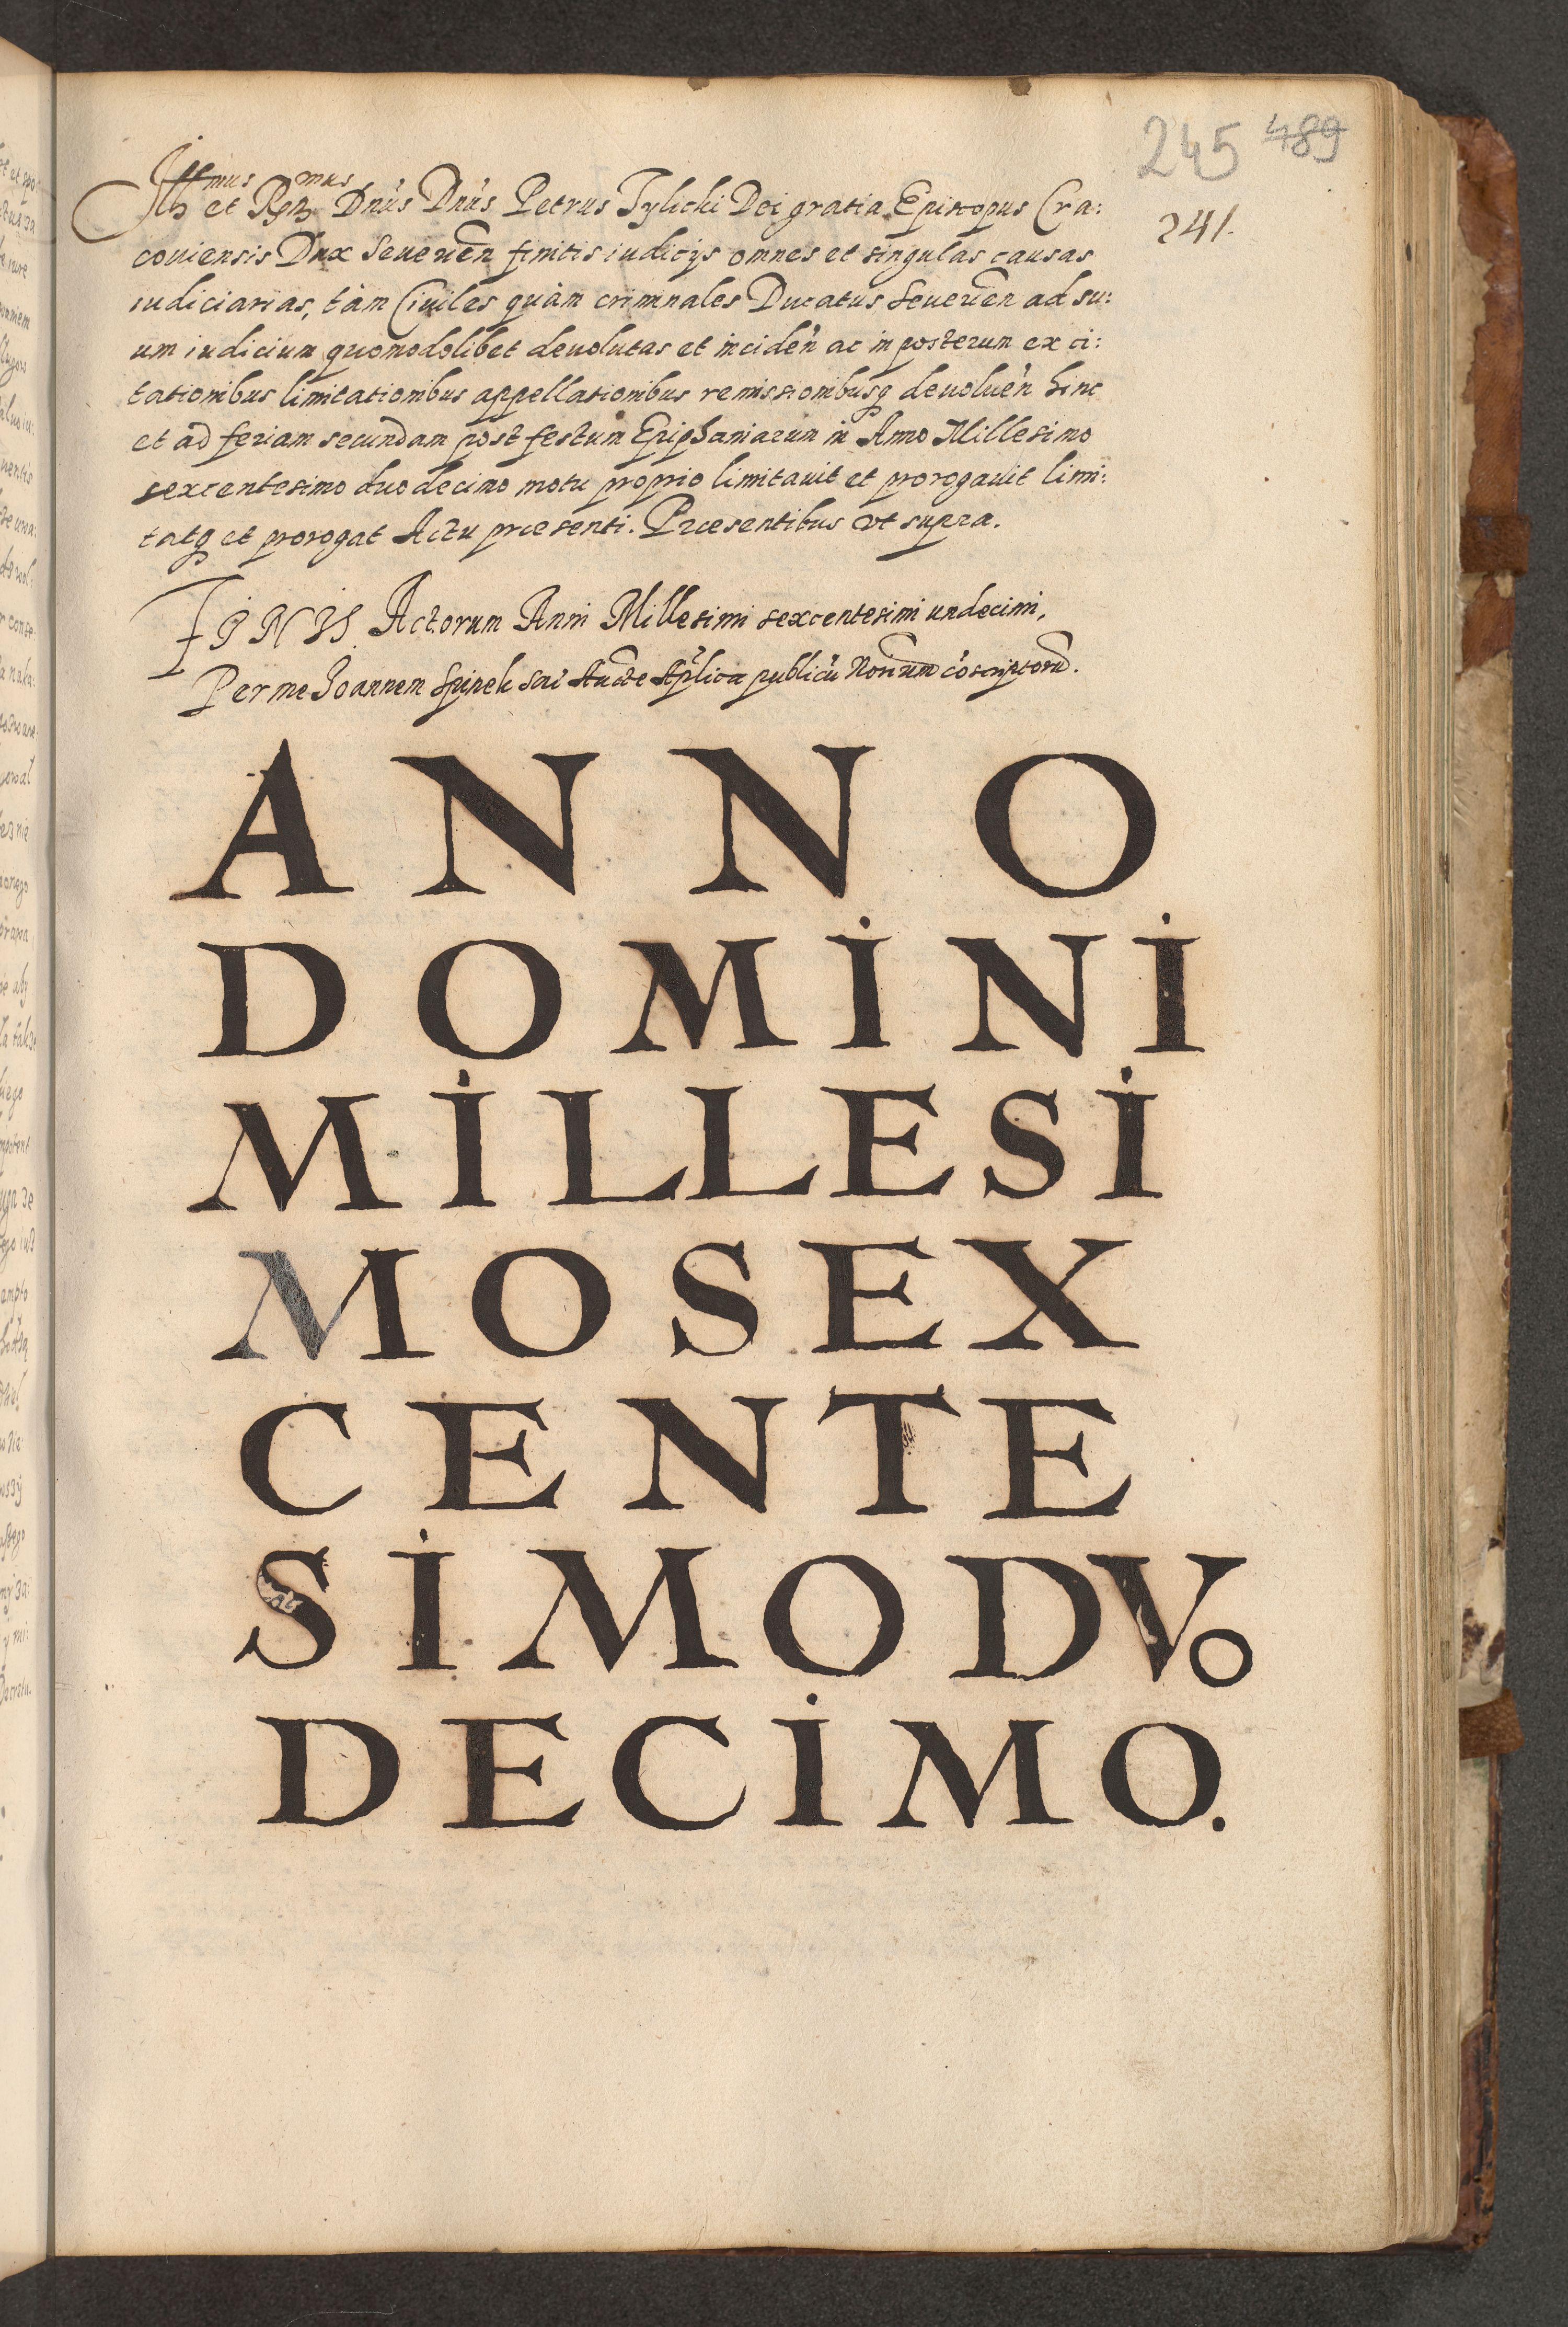 245 489
241.
Illmus et Rndmus Dnus Dnus Petrus Tylicki Dei gratia Episcopus Cra:
coviensis Dux Severien finitis iudicijs omnes et singulas causas
iudiciarias, tàm Civiles quàm criminales Ducatus Severien ad su:
um iudicium quomodolibet devolutas et inciden ac in posterum ex ci:
tationibus limitationibus appellationibus remissionibusq devoluen hinc
et ad feriam secundam post festum Epiphaniarum in Anno Millesimo
sexcentesimo duodecimo motu proprio limitavit et prorogavit limi:
tatq et prorogat Actu præsenti. Præsentibus vt supra.
FINIS Actorum Anni Millesimi sexcentesimi undecimi,
Per me Joannem Spinek Aucte Aplica publicu Norium coscriptoru.
ANNO
DOMINI
MILLESI
MOSEX
CENTE
SIMODVo
DECIMO.